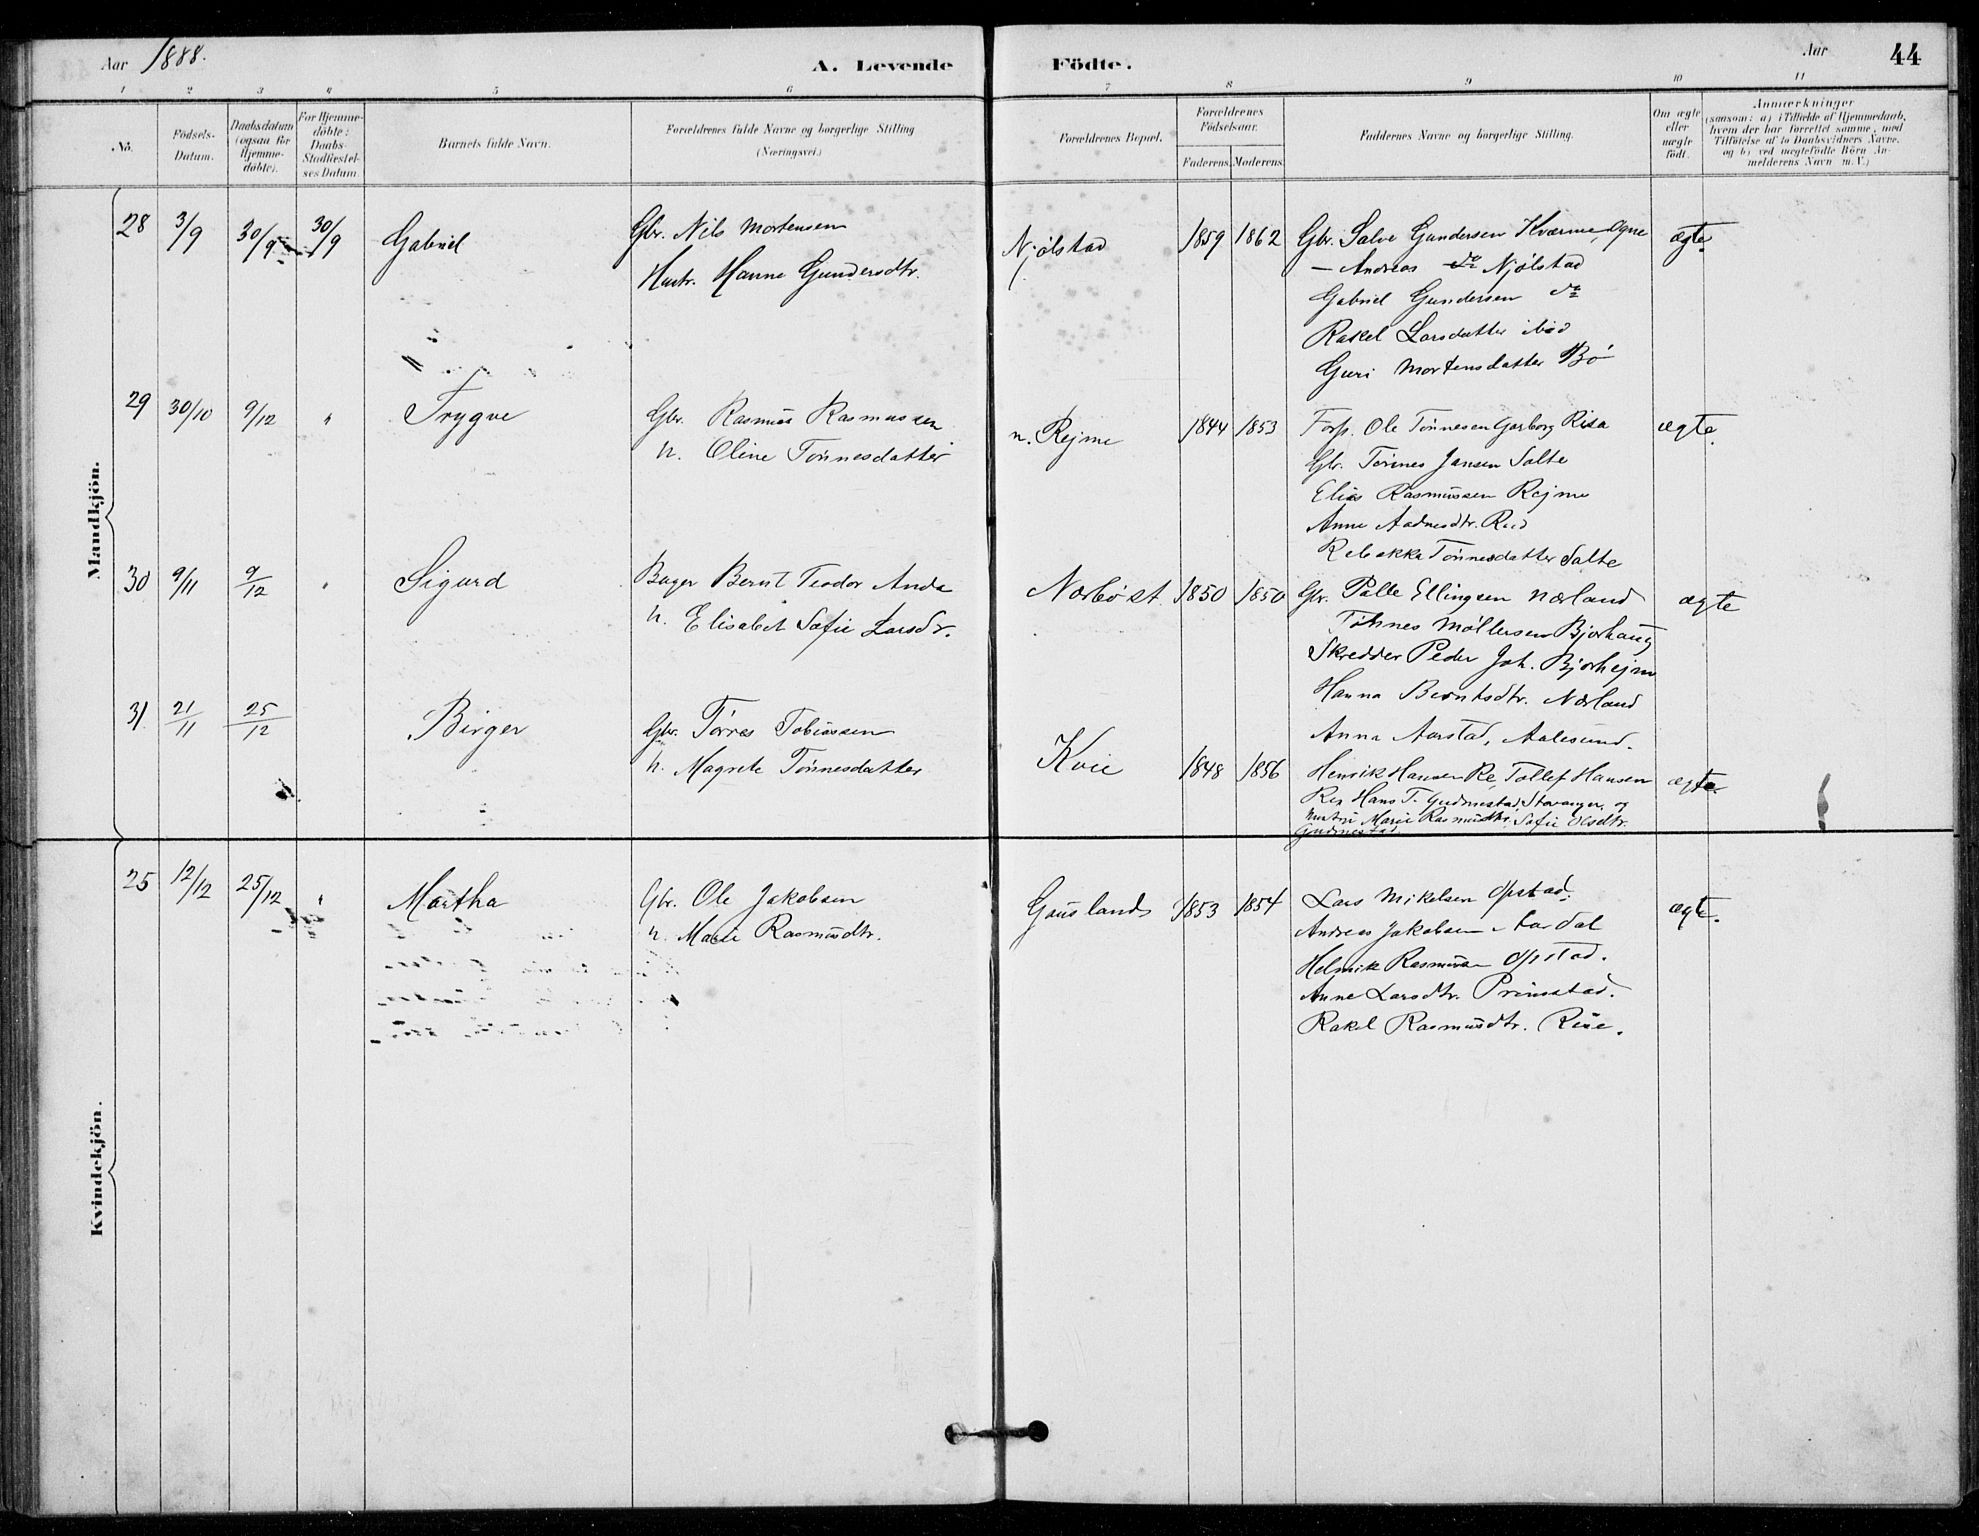 Aar 1888.
A. Levende Födte.
Aar
44
1 2 3 4 5 6 7 8 9 10 11
No.
Födsels-Datum.
Daabsdatum (ogsaa for Hjemme-döbte).
For Hjemme-döbte: Daabs-Stadfæstel-ses Datum.
Barnets fulde Navn.
Forældrenes fulde Navne og borgerlige Stilling
(Næringsvei.)
Forældrenes Bopæl.
Forældrenes Födselsaar.
Faderens. Moderens.
Faddernes Navne og borgerlige Stilling.
Om ægte eller uægte födt.
Anmærkninger
(saasom: a) i Tilfælde af Hjemmedaab,
hvem der har forrettet samme, med
Tilföielse af to Daabsvidners Navne.
og b) ved uægtefödte Börn An-
melderens Navn m. V.)
Mandkjön.
28 3/9 30/9 30/9 Gabriel Gbr. Nils Mortensen
Hustr. Hanne Gundersdtr.
Njølstad 1859 1862 Gbr. Salve Gundersen Kværme, Ogne ægte.
— Andreas do Njølstad
Gabriel Gundersen do
Rakel Larsdatter ibid
Guri Mortensdatter Bö
29 30/10 9/12 " Trygve Gbr. Rasmus Rasmussen
h. Oline Tønnesdatter
n. Rejme 1844 1853 Forp. Ole Tønnesen Garborg Risa ægte.
Gbr. Tönnes Jansen Salte
Elias Rasmussen Rejme
Anne Aadnesdtr.
Rebekka Tønnesdatter Salte
30 9/11 9/12 " Sigurd Bager Bernt Teodor Anda
h. Elisabet Sofie Larsdr.
Nærbø st. 1850 1850 Gbr. Palle Ellingsen Nærland ægte
Tönnes Möllersen Bjorhaug
Skredder Peder Joh. Bjorhejm
Hanna Berntsdtr. Nærland
Anna Aarstad, Aalesund.
31 21/11 25/12 Birger Gbr. Tørres Tobiassen
h. Magrete Tønnesdatter
Kvie 1848 1856 Henrik Hansen Re, Tollef Hansen ægte
Re, Hans T. Gudmestad, Stavanger, og
Hustru Marie Rasmusdtr. Sofie Olsdtr.
Gudmestad
Kvindekjön.
25 12/12 25/12 " Martha Gbr. Ole Jakobsen
h. Marie Rasmusdtr.
Gausland 1853 1854 Lars Mikelsen Opstad. ægte.
Andreas Jakobsen
Helmik Rasmussen Opstad.
Anne Larsdtr. Primstad.
Rakel Rasmusdtr. Rise.